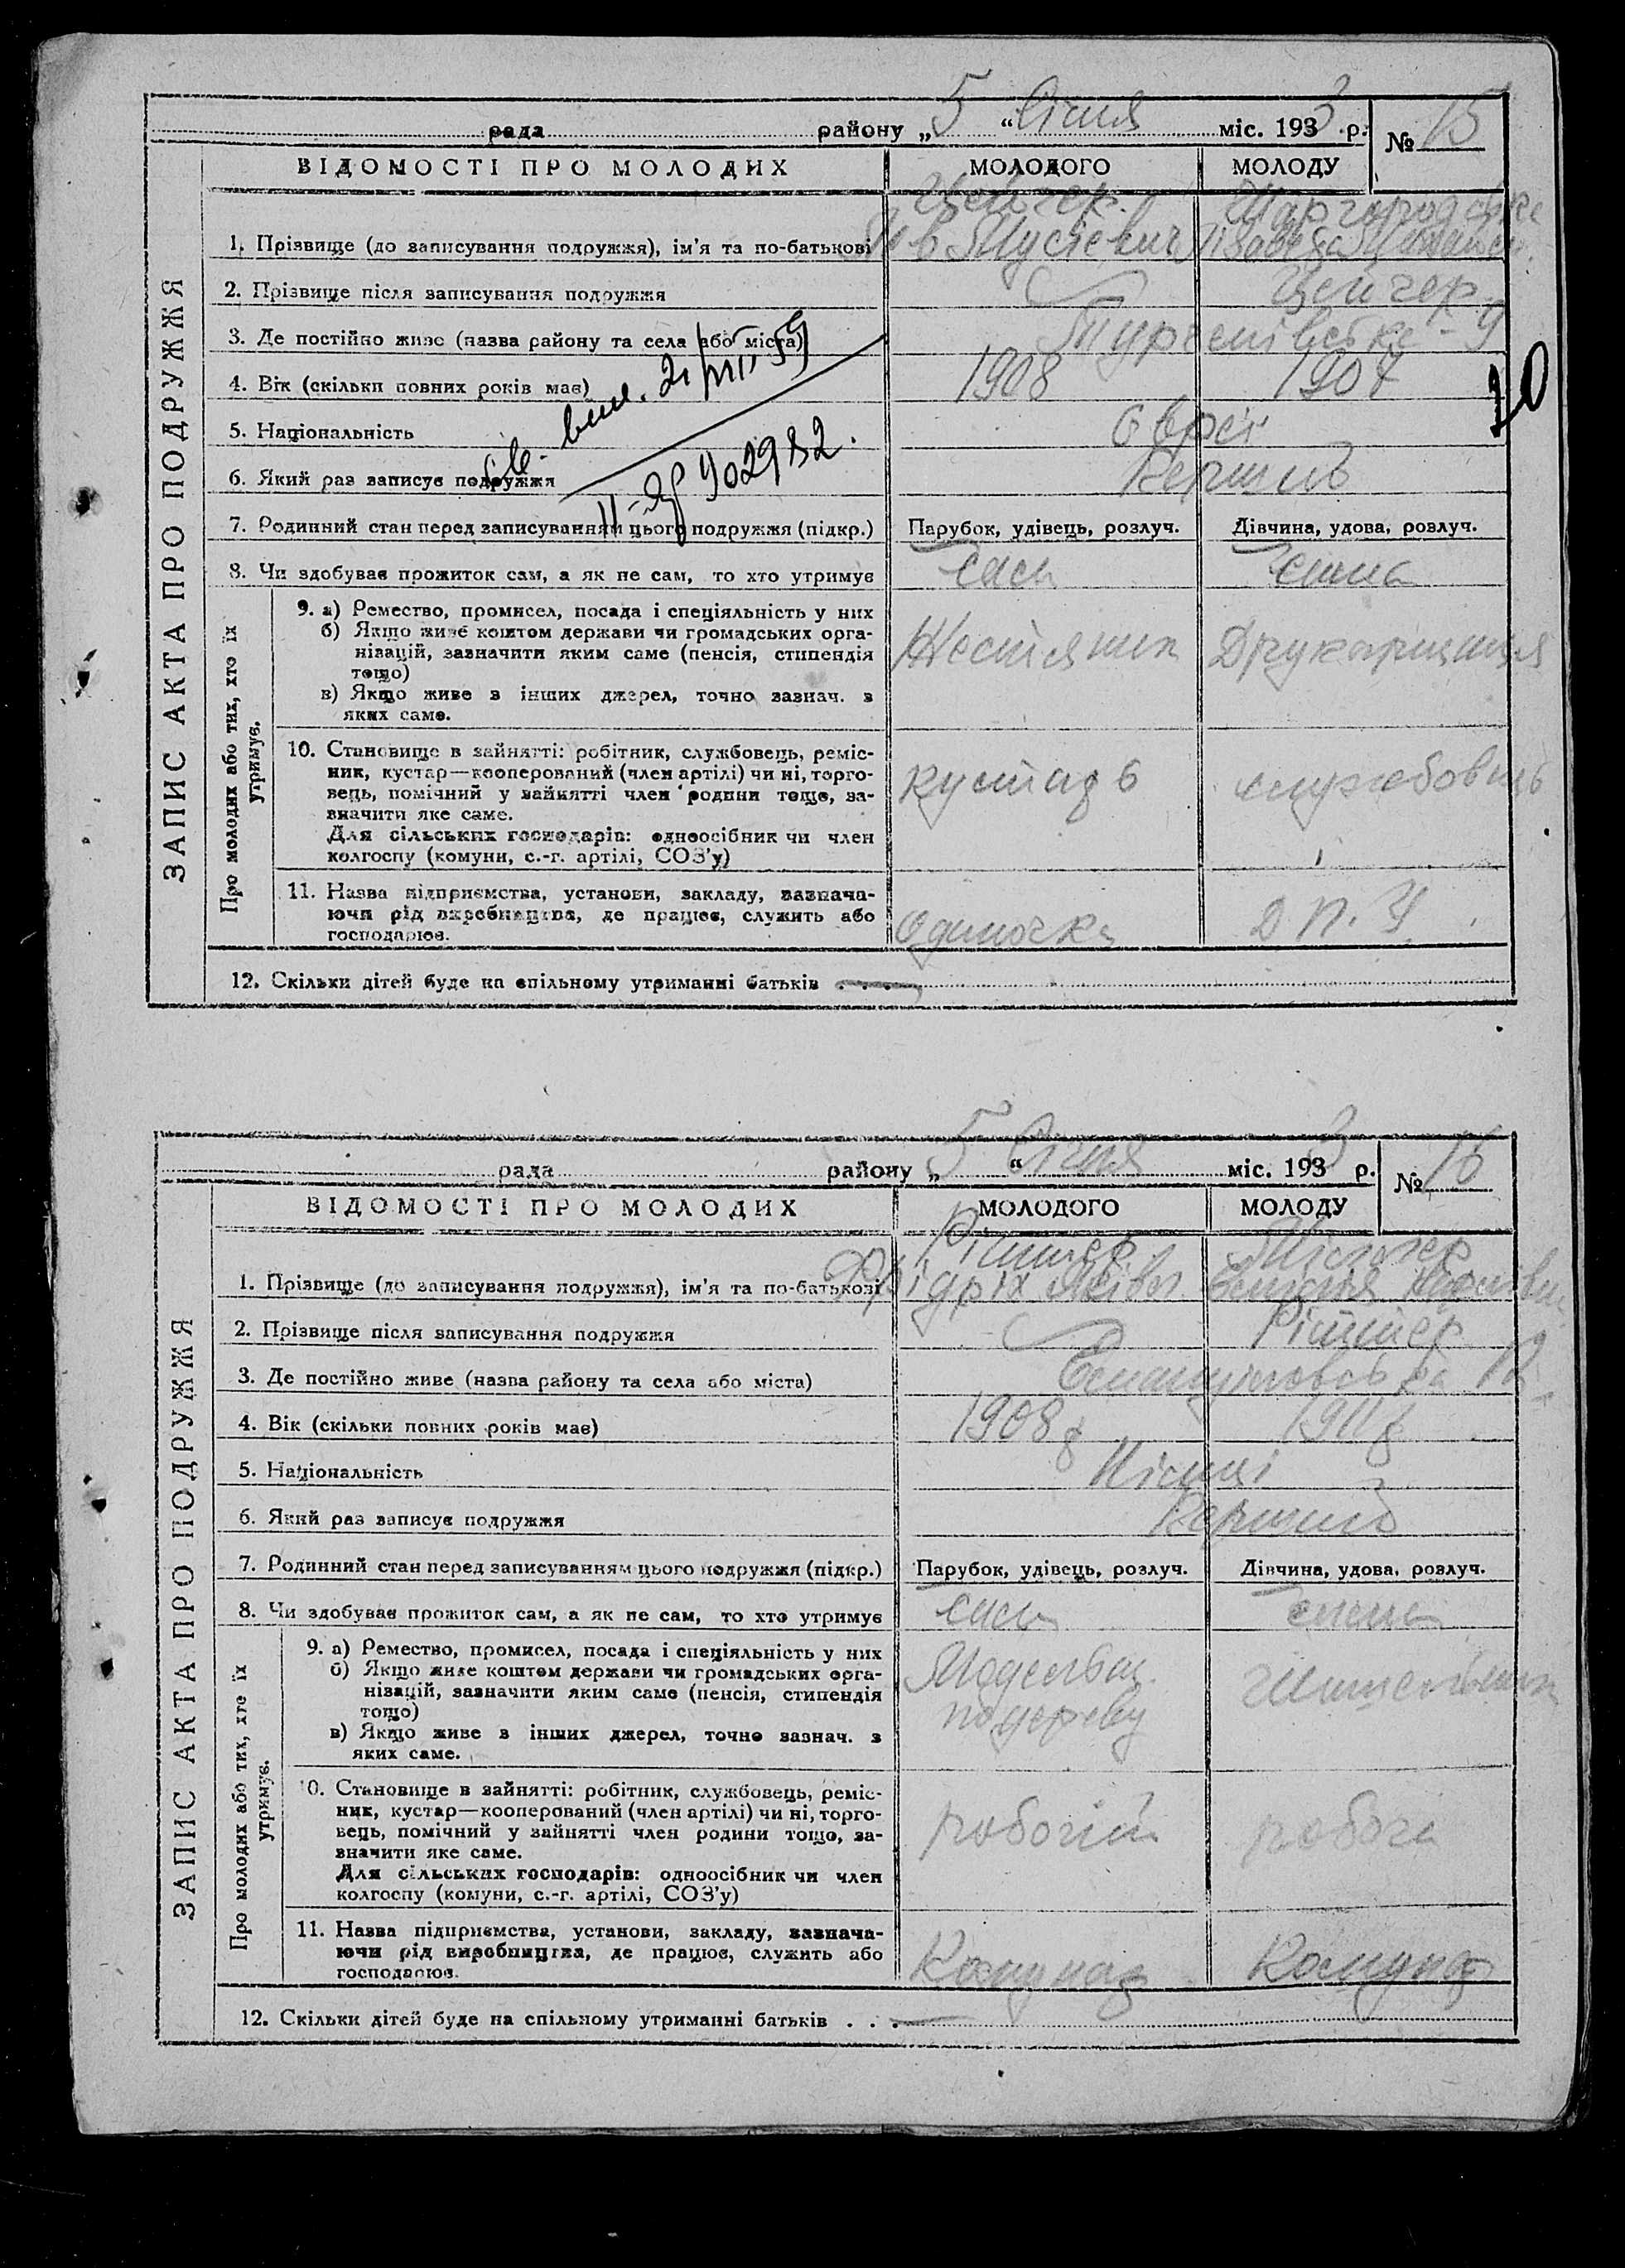 рада району „5“ Січня міс. 1933 р. № 15
ВІДОМОСТІ ПРО МОЛОДИХ МОЛОДОГО МОЛОДУ
ЗАПИС АКТА ПРО ПОДРУЖЖЯ
Цейгер
1. Прізвище (до записування подружжя), ім'я та по-батькові Мусієвич Лізавета
2. Прізвище після записування подружжя Цейгер
3. Де постійно живе (назва району та села або міста)
4. Вік (скільки повних років має) 1908 1907
20
5. Національність Євреї
6. Який раз записує подружжя Перший
902982.
7. Родинний стан перед записуванням цього подружжя (підкр.) Парубок, удівець, розлуч. Дівчина, удова, розлуч.
8. Чи здобуває прожиток сам, а як не сам, то хто утримує сам сама
Про молодих або тих, хто їх утримує.
9. а) Ремество, промисел, посада і спеціяльність у них
б) Якщо живе коштом держави чи громадських орга-
нізацій, зазначити яким саме (пенсія, стипендія
тощо)
в) Якщо живе з інших джерел, точно зазнач. з
яких саме.
Жестяник Друкарщиця
10. Становище в зайнятті: робітник, службовець, реміс-
ник, кустар—кооперований (член артілі) чи ні, торго-
вець, помічний у зайнятті член родини тощо, за-
значити яке саме.
Для сільських господарів: одноосібник чи член
колгоспу (комуни, с.-г. артілі, СОЗ'у)
кустарь службовець
11. Назва підприємства, установи, закладу, зазнача-
ючи рід виробництва, де працює, служить або
господарює.
Одиночка Д П. У.
12. Скільки дітей буде на спільному утриманні батьків . . . —
рада району „5“ Січня міс. 1933 р. № 16
ВІДОМОСТІ ПРО МОЛОДИХ МОЛОДОГО МОЛОДУ
ЗАПИС АКТА ПРО ПОДРУЖЖЯ
Ріттер
1. Прізвище (до записування подружжя), ім'я та по-батькові Фрідріх Яківл.
2. Прізвище після записування подружжя Ріттер
3. Де постійно живе (назва району та села або міста) 12
4. Вік (скільки повних років має) 1908 р 1911 р
5. Національність Німці
6. Який раз записує подружжя Перший
7. Родинний стан перед записуванням цього подружжя (підкр.) Парубок, удівець, розлуч. Дівчина, удова, розлуч.
8. Чи здобуває прожиток сам, а як не сам, то хто утримує сам сама
Про молодих або тих, хто їх утримує.
9. а) Ремество, промисел, посада і спеціяльність у них
б) Якщо живе коштом держави чи громадських орга-
нізацій, зазначити яким саме (пенсія, стипендія
тощо)
в) Якщо живе з інших джерел, точно зазнач. з
яких саме.
Модельщ.
по дереву
10. Становище в зайнятті: робітник, службовець, реміс-
ник, кустар—кооперований (член артілі) чи ні, торго-
вець, помічний у зайнятті член родини тощо, за-
значити яке саме.
Для сільських господарів: одноосібник чи член
колгоспу (комуни, с.-г. артілі, СОЗ'у)
робочій робоча
11. Назва підприємства, установи, закладу, зазнача-
ючи рід виробництва, де працює, служить або
господарює.
Комунар Комунар
12. Скільки дітей буде на спільному утриманні батьків . . . —